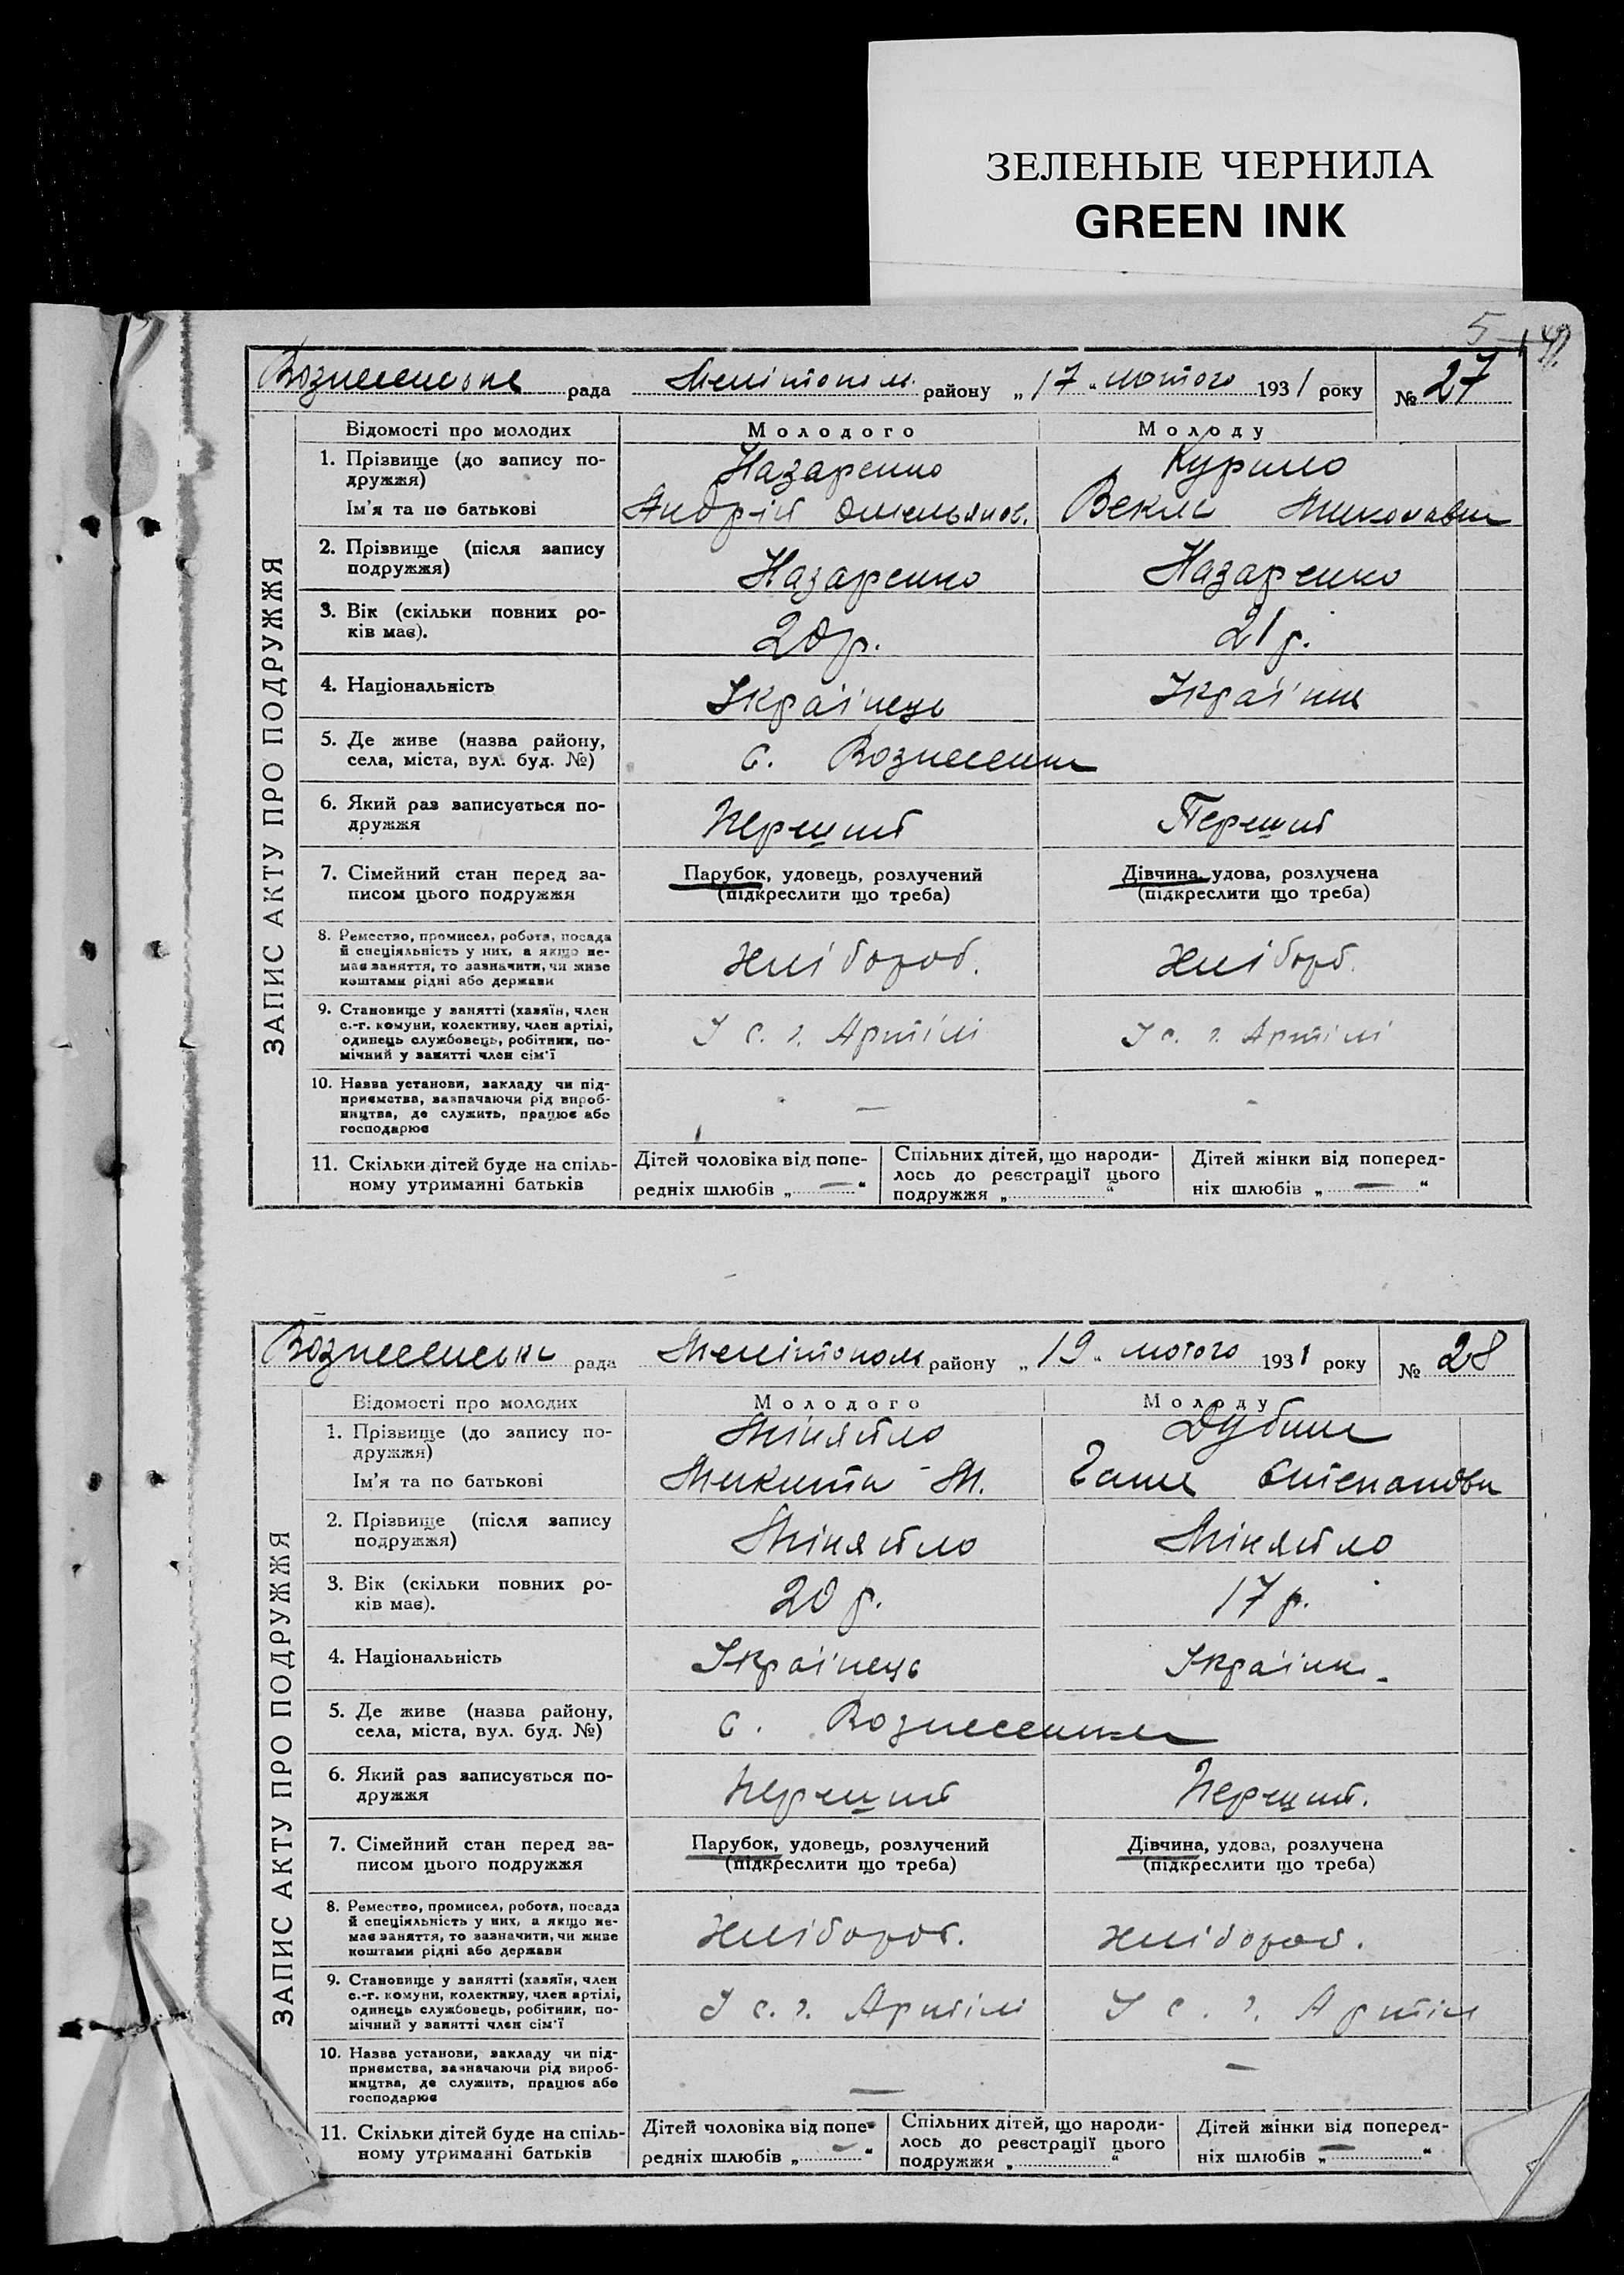 ЗЕЛЕНЫЕ ЧЕРНИЛА
GREEN INK
5
Вознесенська рада Мелітопол. району „17" лютого 1931 року № 27
ЗАПИС АКТУ ПРО ПОДРУЖЖЯ
Відомості про молодих Молодого Молоду
1. Прізвище (до запису по-
дружжя) Назаренко Курило
Ім'я та по батькові Андрій Омельянов. Векла Миколавна
2. Прізвище (після запису
подружжя) Назаренко Назаренко
3. Вік (скільки повних ро-
ків має). 20 р. 21 р.
4. Національність Українець Українка
5. Де живе (назва району,
села, міста, вул. буд. №) с. Вознесенка
6. Який раз записується по-
дружжя Перший Перший
7. Сімейний стан перед за- Парубок, удовець, розлучений Дівчина, удова, розлучена
писом цього подружжя (підкреслити що треба) (підкреслити що треба)
8. Ремество, промисел, робота, посада
й спеціяльність у них, а якщо не-
має заняття, то зазначити, чи живе
коштами рідні або держави Хлібороб. Хлібороб.
9. Становище у занятті (хазяїн, член
с.-г. комуни, колективу, член артілі,
одинець службовець, робітник, по-
мічний у занятті член сім'ї У с. г. Артілі У с. г. Артілі
10. Назва установи, закладу чи під-
приємства, зазначаючи рід вироб-
ництва, де служить, працює або
господарює — -
11. Скільки дітей буде на спіль- Дітей чоловіка від попе- Спільних дітей, що народи- Дітей жінки від поперед-
ному утриманні батьків редніх шлюбів „—" лось до реєстрації цього ніх шлюбів „—"
подружжя „ "
Вознесенська рада Мелітопол району „19" лютого 1931 року № 28
ЗАПИС АКТУ ПРО ПОДРУЖЖЯ
Відомості про молодих Молодого Молоду
1. Прізвище (до запису по-
дружжя) Міняйло Дубина
Ім'я та по батькові Микита М. Ганна Степановн
2. Прізвище (після запису
подружжя) Міняйло Міняйло
3. Вік (скільки повних ро-
ків має). 20 р. 17 р.
4. Національність Українець Українк.
5. Де живе (назва району,
села, міста, вул. буд. №) с. Вознесенка
6. Який раз записується по-
дружжя Перший Перший.
7. Сімейний стан перед за- Парубок, удовець, розлучений Дівчина, удова, розлучена
писом цього подружжя (підкреслити що треба) (підкреслити що треба)
8. Ремество, промисел, робота, посада
й спеціяльність у них, а якщо не-
має заняття, то зазначити, чи живе
коштами рідні або держави Хлібороб. Хлібороб.
9. Становище у занятті (хазяїн, член
с.-г. комуни, колективу, член артілі,
одинець службовець, робітник, по-
мічний у занятті член сім'ї У с. г. Артілі У с. г. Артіл
10. Назва установи, закладу чи під-
приємства, зазначаючи рід вироб-
ництва, де служить, працює або
господарює — —
11. Скільки дітей буде на спіль- Дітей чоловіка від попе- Спільних дітей, що народи- Дітей жінки від поперед-
ному утриманні батьків редніх шлюбів „—" лось до реєстрації цього ніх шлюбів „—"
подружжя „ "